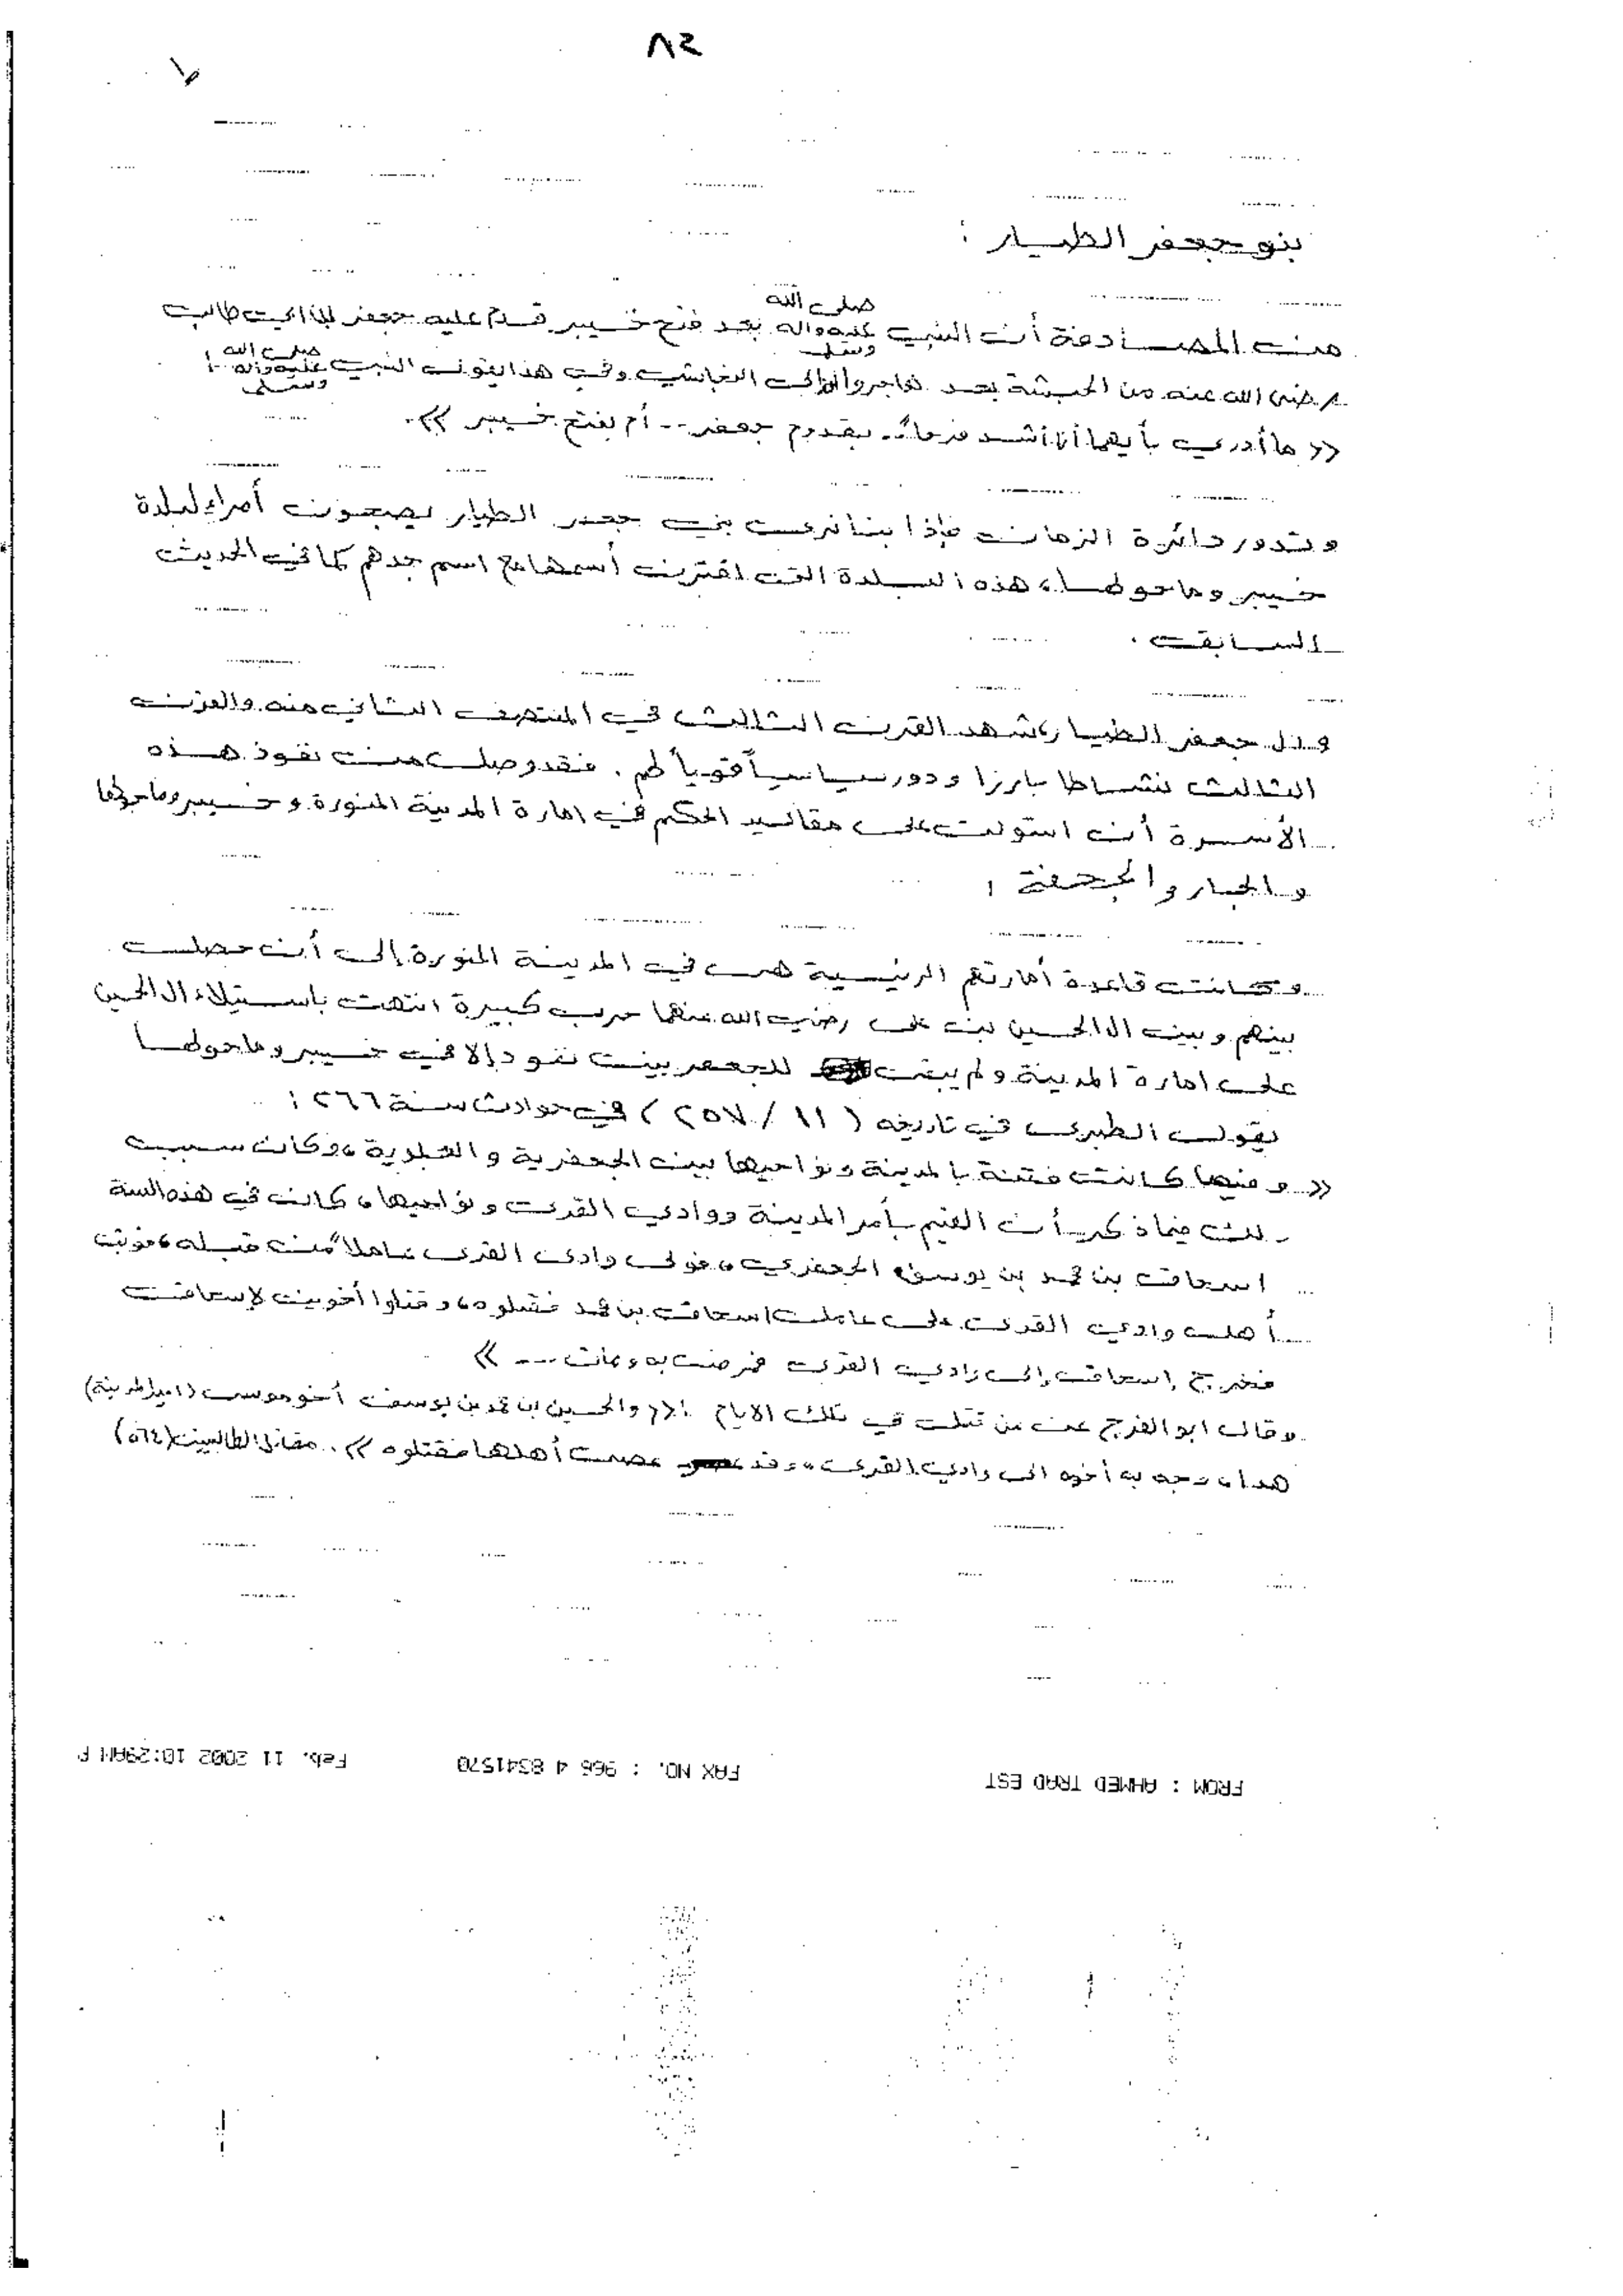 ٨٢
بنو جعفر الطيار :
من المصادفة أن النبي صلى الله عليه وآله وسلم بعد فتح خيبر قدم عليه جعفر ابن ابي طالب
رضى الله عنه من الحبشة بعد الى النجاشي وفي هذا يقول النبي صلى الله عليه وآله وسلم :
<< ما أدري بأيهما أنا أشد فرحاً . بقدوم جعفر .. أم بفتح خيبر >> .
وتدور دائرة الزمان فإذا بنا نرى بني جعفر الطيار يصبحون أمراء لبلدة
خيبر وما حولها ، هذه البلدة التى اقترن أسمها مع اسم جدهم كما في الحديث
السابق .
جعفر الطيار ، شهد القرن الثالث في المنتصف الثاني منه والقرن
الثالث نشاطا بارزا ودور سياسياً قوياً لهم . فقد وصل من نفوذ هذه
الأسرة أن استولت على مقاليد الحكم في امارة المدينة المنورة وخيبر وما حولها
والجار والجحفة :
وكانت قاعدة أمارتهم الرئيسية هى في المدينة المنورة إلى أن حصلت
بينهم وبين ال الحسين بن على رضي الله عنهما حرب كبيرة انتهت باستيلاء ال الحسين
على امارة المدينة ولم يبق للجعفريين نفوذ إلا في خيبر وما حولها
يقول الطبرى في تاريخه ( ١١ / ٢٥٧ ) في حوادث سنة ٢٦٦ :
<< وفيها كانت فتنة بالمدينة ونواحيها بين الجعفرية والعلوية ، وكان سبب
ذلك فيما ذكر أن القيم بأمر المدينة ووادي القرى ونواحيها ، كان في هذه السنة
اسحاق بن محمد بن يوسف الجعفري ، فولى وادى القرى عاملاً من قبله ، فوثب
أهل وادي القرى على عامل اسحاق بن محمد فقتلوه ، وقتلوا أخوين لإسحاق
فخرج إسحاق إلى وادي القرى فمرض به ومات ... >>
وقال ابو الفرج عن من قتل في تلك الايام : << والحسين بن محمد بن يوسف أخو موسى (امير المدينة)
هذا ، وجه به أخوه الى وادي القرى ، وقد عصى أهلها فقتلوه >> . مقاتل الطالبيين (٥٦٤)
FROM : AHMED TRAD EST FAX NO. : 966 4 8341570 Feb. 11 2002 10:29AM P